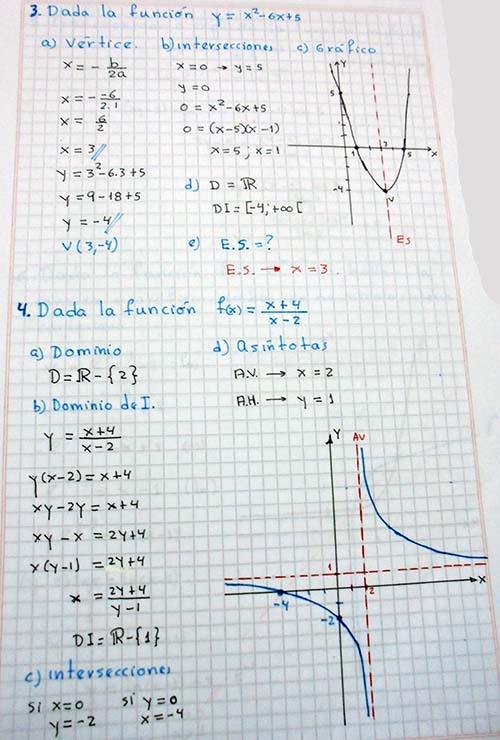 3. Dada la función y = x²-6x+5
a) Vértice.
x = - b/2a
x = - -6/2.1
x = 6/2
x = 3
y = 3²-6.3+5
y = 9-18+5
y = -4
V(3,-4)
b) intersecciones
x=0 → y=5
y=0
0 = x²-6x+5
0 = (x-5)(x-1)
x=5 ; x=1
c) Gráfico
Y
5
1
3
5
x
-4
V
Es
d) D = ℝ
DI = [-4; +∞[
e) E.S. = ?
E.S. → x = 3.
4. Dada la función f(x) = x+4/x-2
a) Dominio
D = ℝ - {2}
b) Dominio de I.
y = x+4/x-2
y(x-2) = x+4
xy-2y = x+4
xy-x = 2y+4
x(y-1) = 2y+4
x = 2y+4/y-1
DI = ℝ-{1}
c) intersecciones
si x=0
y=-2
si y=0
x=-4
d) asíntotas
A.V. → x = 2
A.H. → y = 1
Y
AV
1
-4
2
X
-2